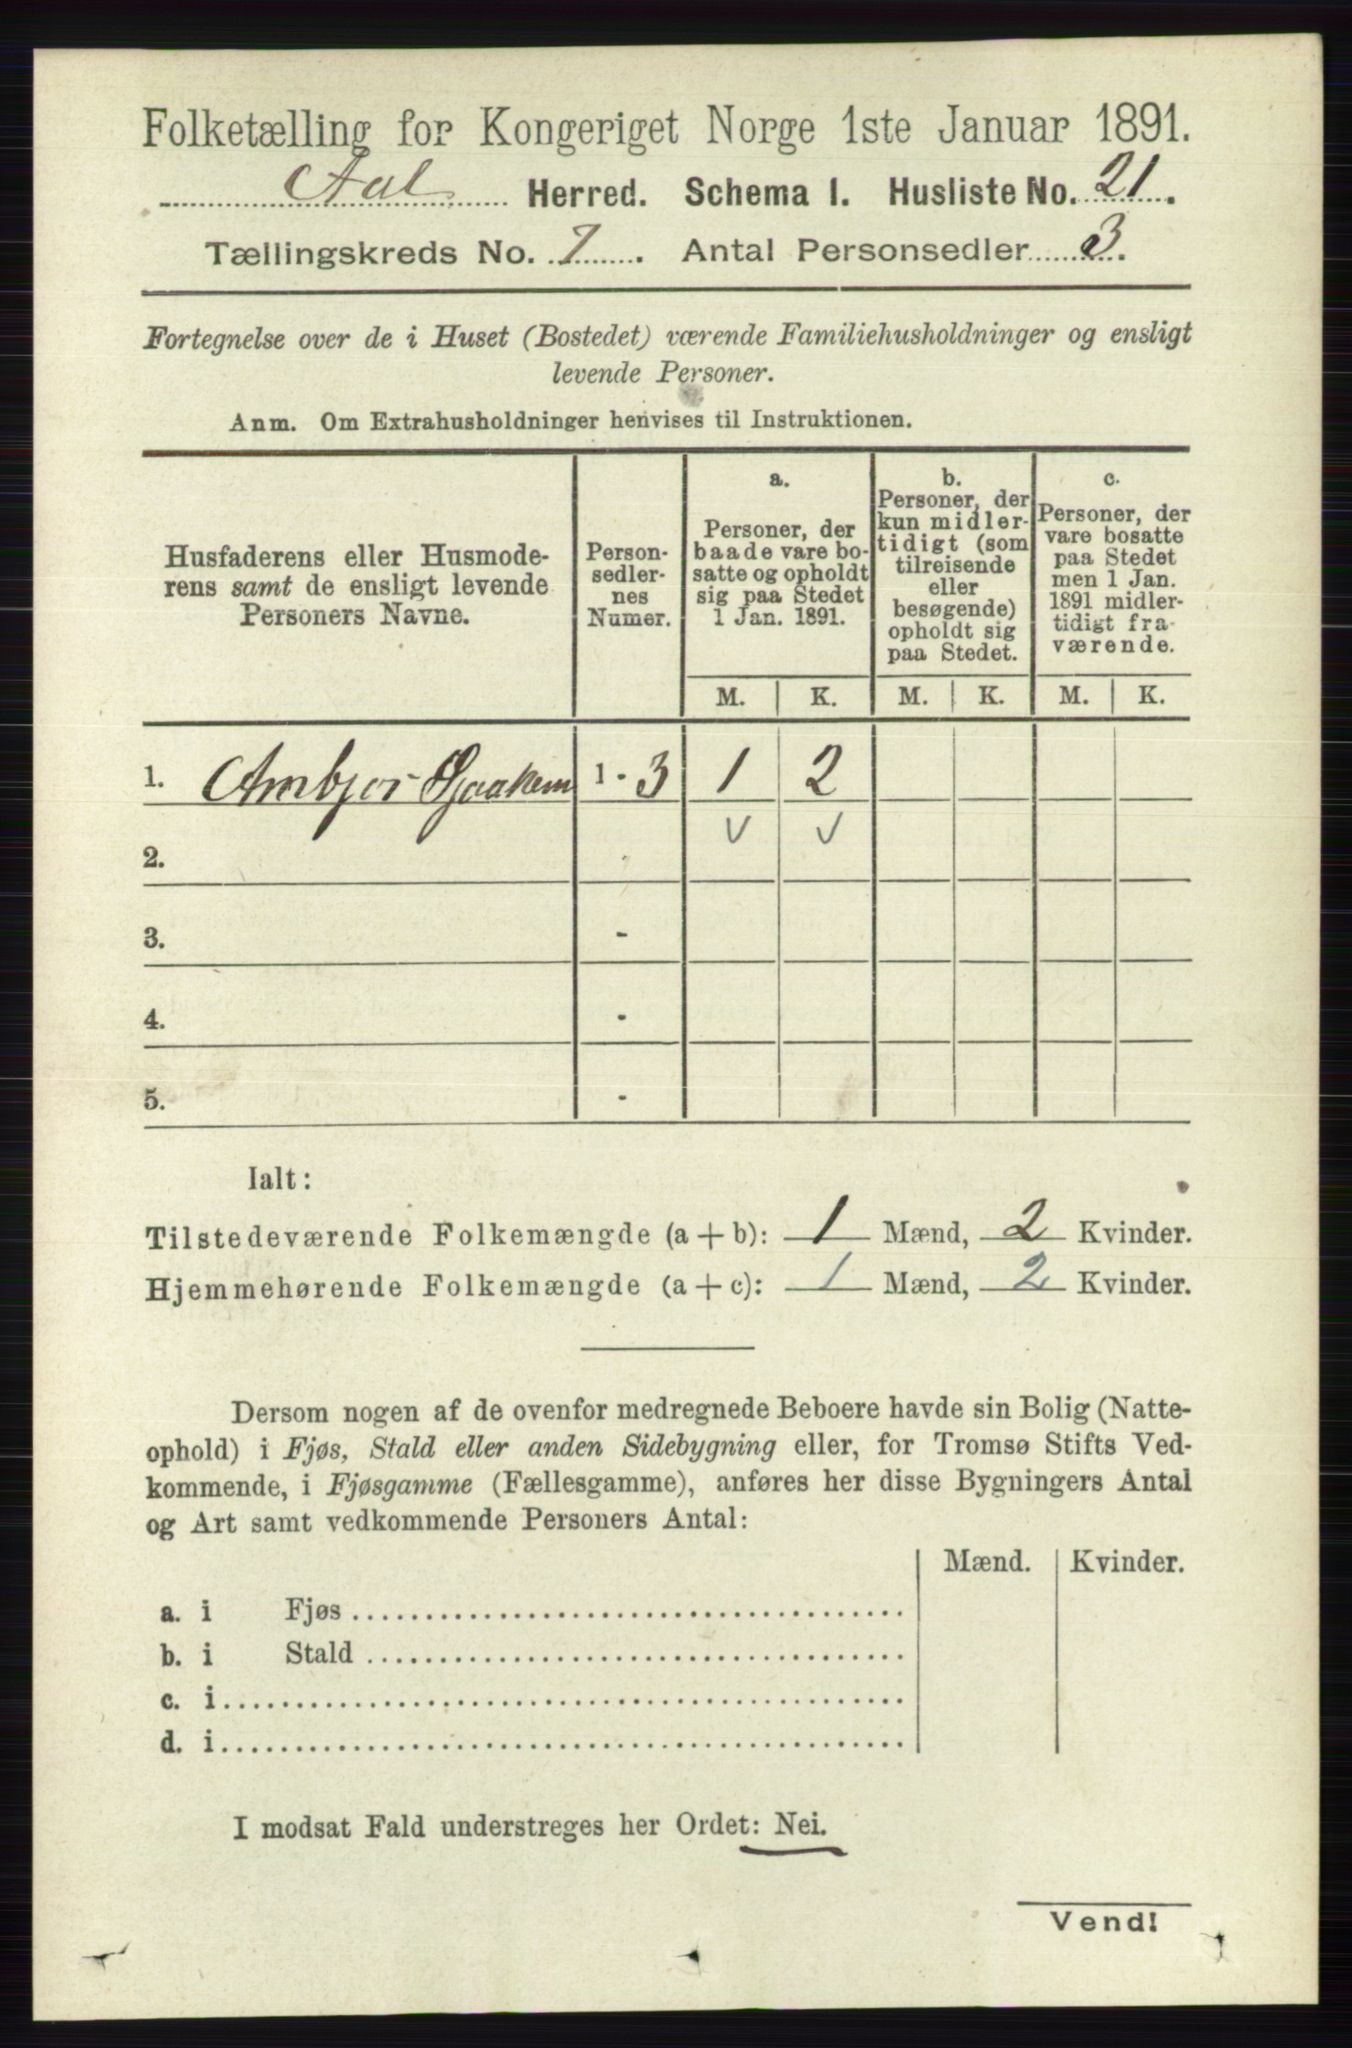 Folketælling for Kongeriget Norge 1ste Januar 1891.
Aal Herred. Schema 1. Husliste No. 21.
Tællingskreds No. 7. Antal Personsedler 3.
Fortegnelse over de i Huset (Bostedet) værende Familiehusholdninger og ensligt
levende Personer.
Anm. Om Extrahusholdninger henvises til Instruktionen.
Husfaderens eller Husmode-
rens samt de ensligt levende
Personers Navne.
Person-
sedler-
nes
Numer.
a.
Personer, der
baade vare bo-
satte og opholdt
sig paa Stedet
1 Jan. 1891.
b.
Personer, der
kun midler-
tidigt (som
tilreisende
eller
besøgende)
opholdt sig
paa Stedet.
c.
Personer, der
vare bosatte
paa Stedet
men 1 Jan.
1891 midler-
tidigt fra-
værende.
M. K. M. K. M. K.
1. Ambjor 1 - 3 1 2
2. √ √
3. -
4. -
5. -
Ialt:
Tilstedeværende Folkemængde (a + b): 1 Mænd, 2 Kvinder.
Hjemmehørende Folkemængde (a + c): 1 Mænd, 2 Kvinder.
Dersom nogen af de ovenfor medregnede Beboere havde sin Bolig (Natte-
ophold) i Fjøs, Stald eller anden Sidebygning eller, for Tromsø Stifts Ved-
kommende, i Fjøsgamme (Fællesgamme), anføres her disse Bygningers Antal
og Art samt vedkommende Personers Antal:
Mænd. Kvinder.
a. i Fjøs
b. i Stald
c. i
d. i
I modsat Fald understreges her Ordet: Nei.
Vend!